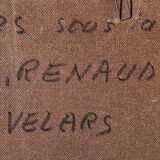 sous
RENAUD
VELARS